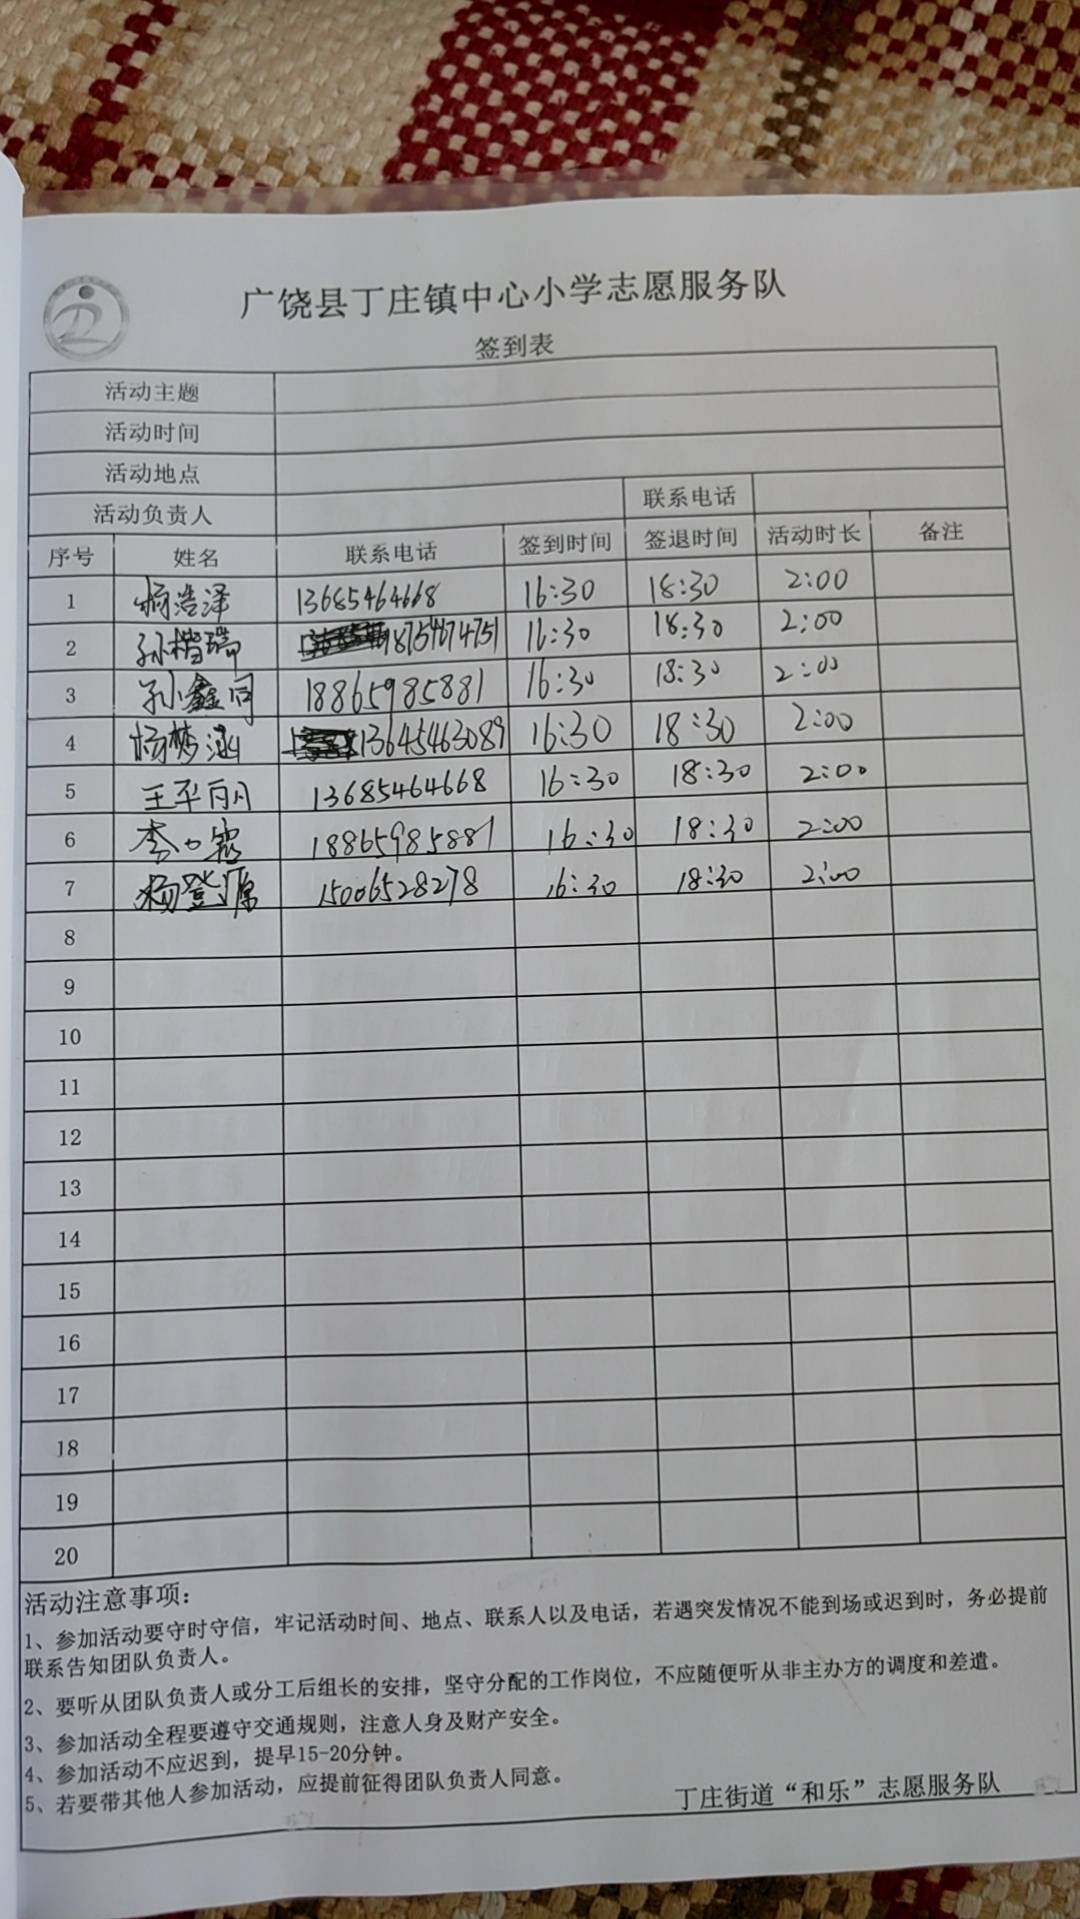 广饶县丁庄镇中心小学志愿服务队
签到表
活动主题
活动时间
活动地点
活动负责人 联系电话
序号 姓名 联系电话 签到时间 签退时间 活动时长 备注
1 杨浩泽 13685464668 16:30 18:30 2:00
2 孙楷瑞 18754674751 16:30 18:30 2:00
3 孙鑫同 18865985881 16:30 18:30 2:00
4 杨梦涵 13645463089 16:30 18:30 2:00
5 王平 13685464668 16:30 18:30 2:00
6 李 18865985881 16:30 18:30 2:00
7 杨登源 15006528278 16:30 18:30 2:00
8
9
10
11
12
13
14
15
16
17
18
19
20
活动注意事项:
1、参加活动要守时守信，牢记活动时间、地点、联系人以及电话，若遇突发情况不能到场或迟到时，务必提前
联系告知团队负责人。
2、要听从团队负责人或分工后组长的安排，坚守分配的工作岗位，不应随便听从非主办方的调度和差遣。
3、参加活动全程要遵守交通规则，注意人身及财产安全。
4、参加活动不应迟到，提早15-20分钟。
5、若要带其他人参加活动，应提前征得团队负责人同意。
丁庄街道“和乐”志愿服务队